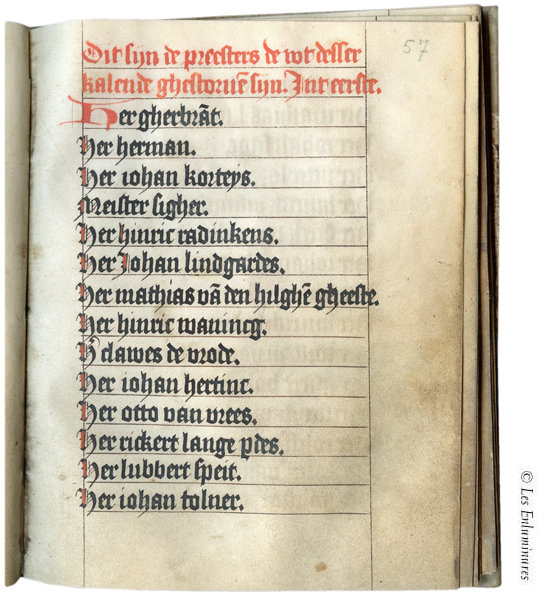 57
Dit sijn de preesters de wt desser
kalende ghestoruē sijn. Int eerste.
Her gherbrāt.
Her herman.
Her iohan korteys.
Meister sigher.
Her hinric radinkens.
Her Johan lindgardes.
Her mathias vā den hilghē gheeste.
Her hinric waningg.
H clawes de vrode.
Her iohan hertinc.
Her otto van vrees.
Her rickert lange pdes.
Her lubbert speit.
Her iohan tolner.
© Les Enluminures